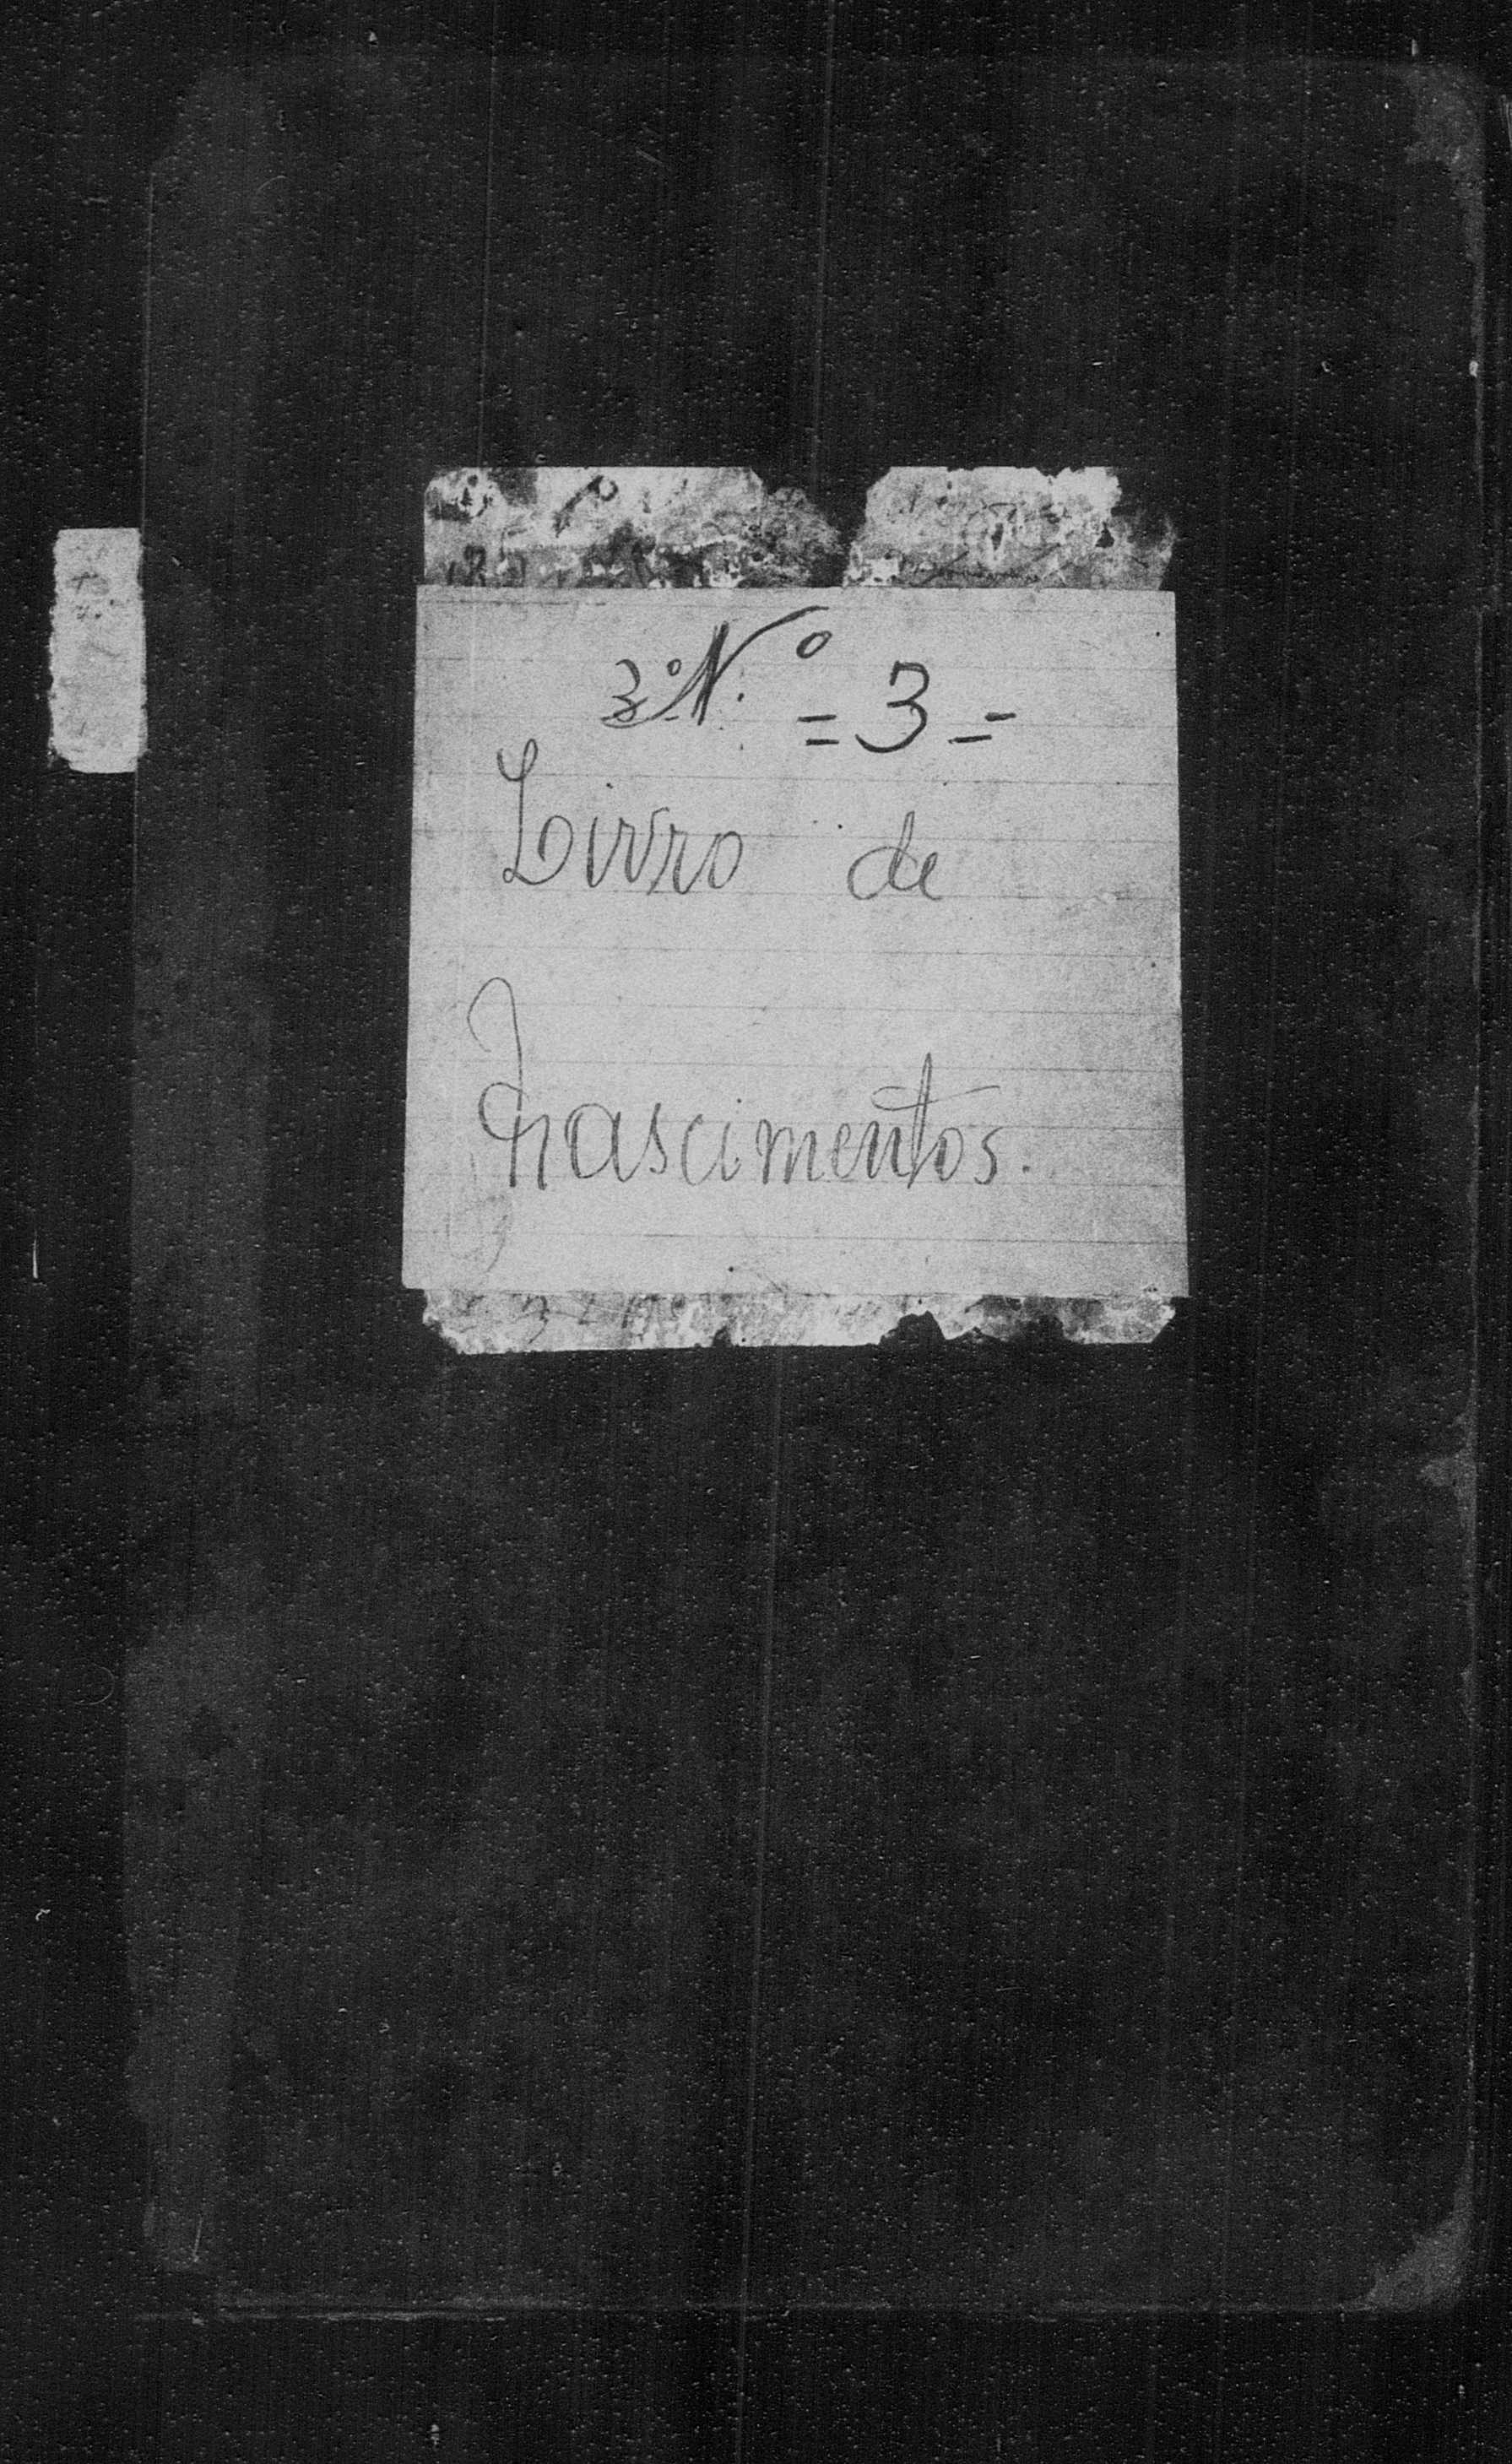 3º Nº = 3 =
Livro de
Nascimentos.